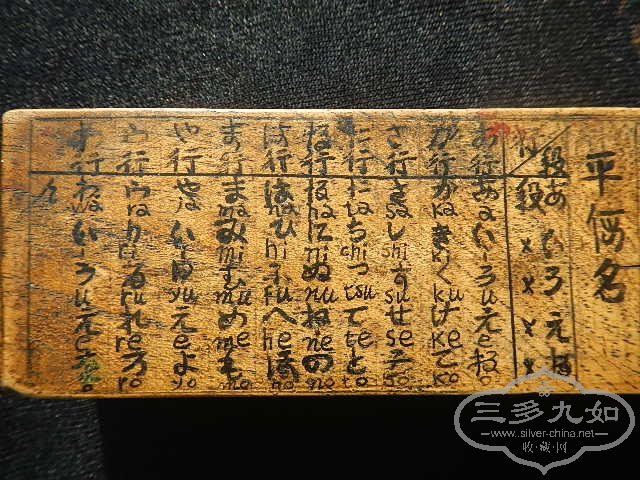 平假名
段 あ い う え お
行 段 × × × ×
あ行 あa いi うu えe おo
か行 かka きki くku けke こko
さ行 さsa しshi すsu せse そso
た行 たta ちchi つtsu てte とto
な行 なna にni ぬnu ねne のno
は行 はha ひhi ふfu へhe ほho
ま行 まma みmi むmu めme もmo
や行 やya いi ゆyu えe よyo
ら行 らra りri るru れre ろro
わ行 わwa いi うu えe をo
ん
三多九如
www.silver-china.net
收·藏·网